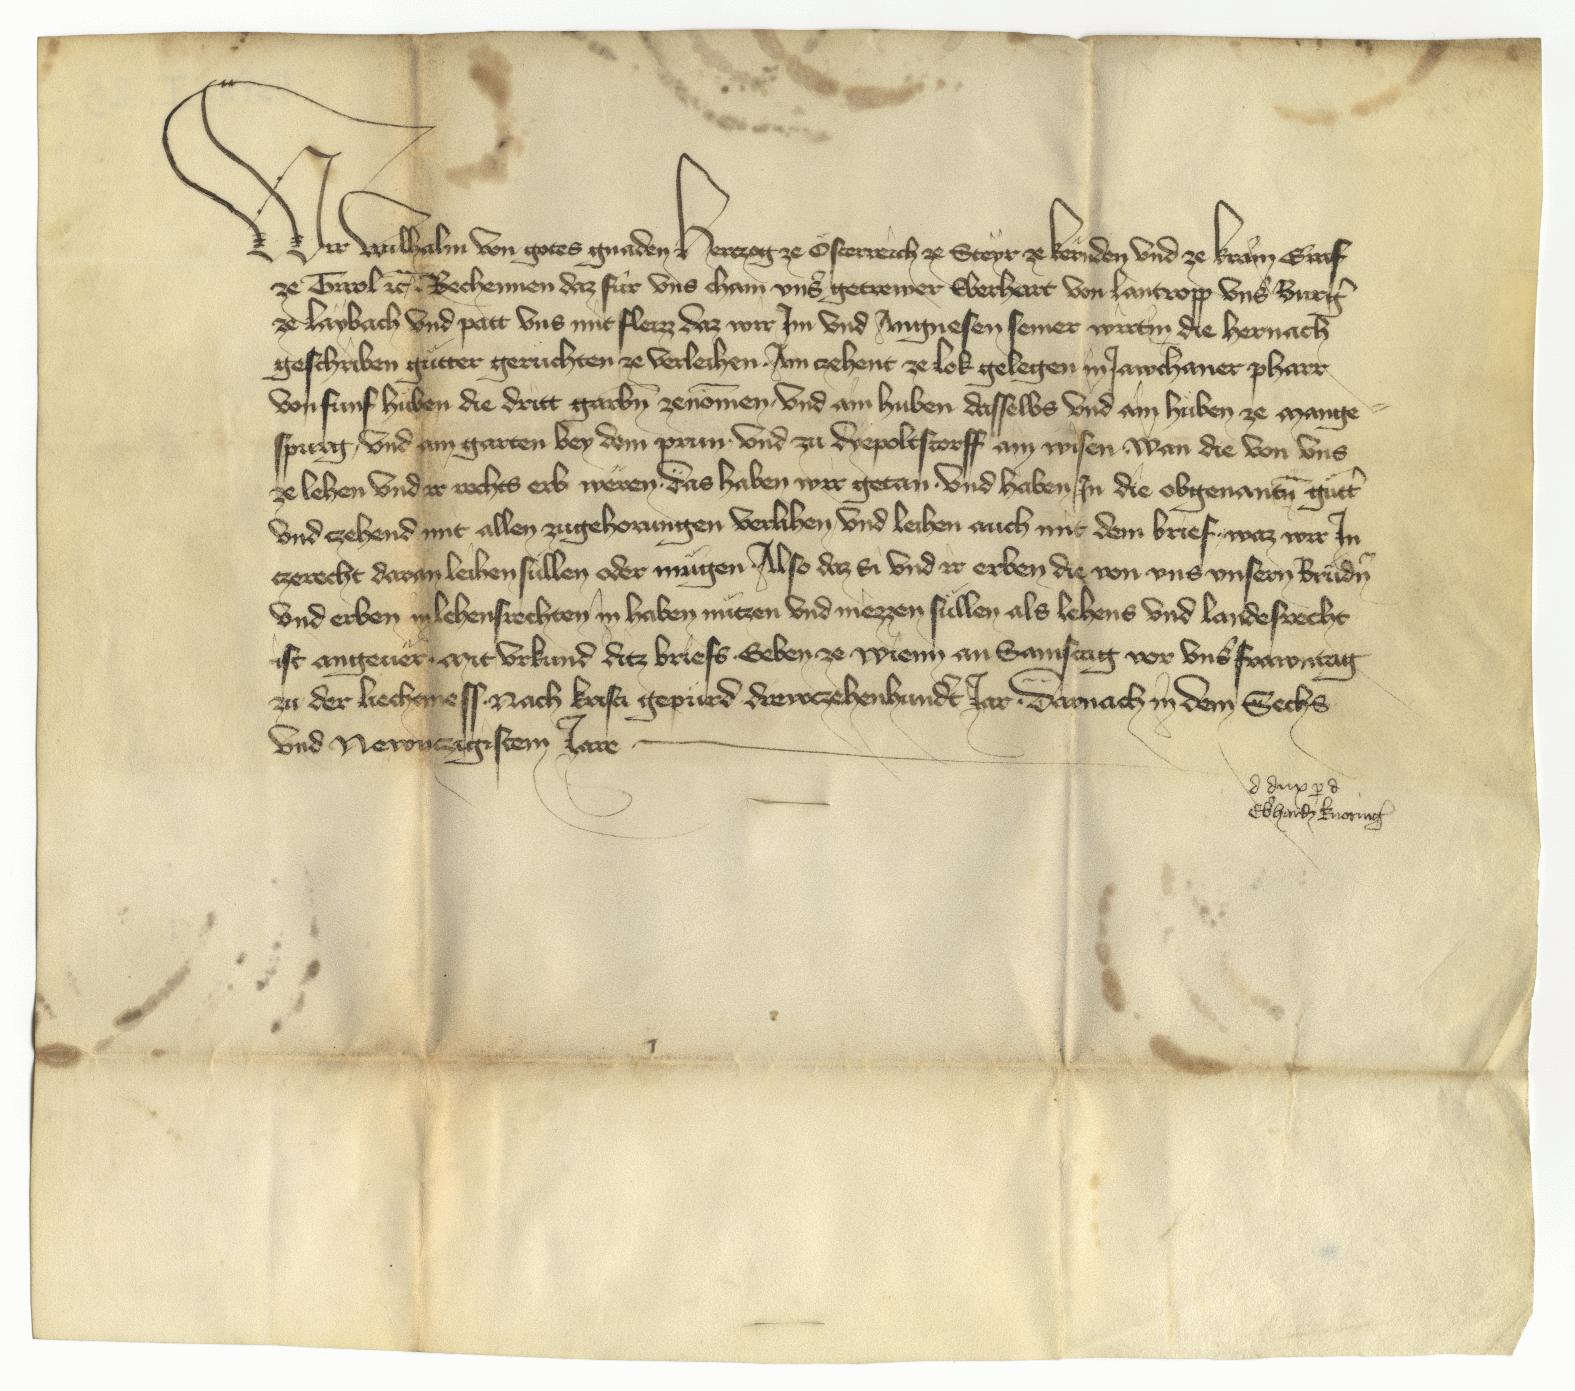 Wir Wilhalm von gotes gnaden Hertzog ze Österreich ze Steyr ze kernden vnd ze krain Graf
ze Tirol etc̄ Bechennen daz für vns cham vnsˀ getrewer Eberhart von lantropp vnsˀ Burgˀ
ze laybach vnd patt vns mit fleizz daz wir Im vnd Angnesen seiner wirtin die hernach
geschriben gütter geruchten ze verleihen. Ain czehent ze lok gelegen in Jawchaner pharr
von fünf hüben die dritt garbn̄ zenōmen. vnd ain huben dasselbs vnd ain hüben ze Mange-
spurg, vnd ain garten bey dem prun. vnd zu dyepoltstorff ain wisen. Wan die von vns
ze lehen vnd ir rechts erb weren. Das haben wir getan. vnd haben In die obgenantn̄ güttˀ
vnd czehend mit allen zugehorungen verlihen vnd leihen auch mit dem brief. waz wir In
czerecht daran leihen süllen oder mügen. Also daz si vnd ir erben die von vns vnsern Brüdˀn
vnd erben in lehensrechten in haben nützen vnd niezzen süllen als lehens vnd landesrecht
ist angeuer. Mit vrkund ditz briefs. Geben ze wienn an Samstag vor vnsˀ frawntag
zu der liechtmess. Nach kristi gepürd drewczehenhundˀt Jar. Darnach in dem Sechs
vnd Newnczigistem Jare
d dux p d
Ebˀhardū